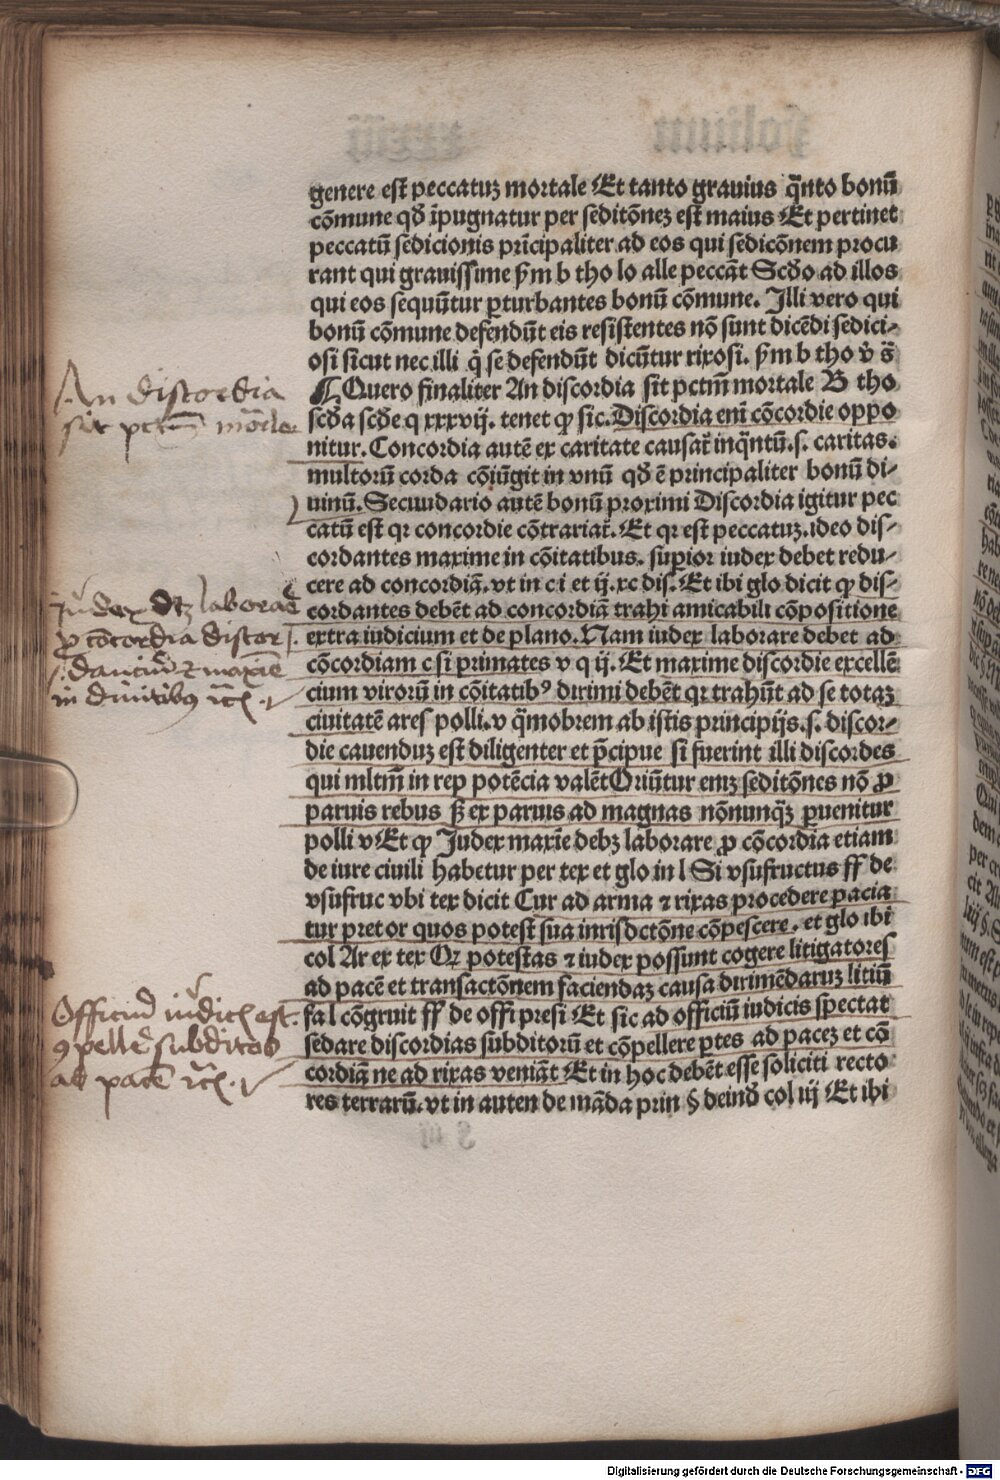 genere est peccatuꝫ mortale Et tanto grauius q̄nto bonū
cōmune qd̄ īpugnatur per seditōneꝫ est maius Et pertinet
peccatū sedicionis prīcipaliter ad eos qui sedicōnem procu
rant qui grauissime ẜm b tho lo alle peccāt Scd̄o ad illos
qui eos sequūtur ꝑturbantes bonū cōmune. Illi vero qui
bonū cōmune defendūt eis resistentes nō sunt dicēdi sedici⸗
osi sicut nec illi q̄ se defendūt dicūtur rixosi. ẜm b tho v̄ s̄
¶ Quero finaliter An discordia sit pctm̄ mortale B tho
scd̄a scd̄e q xxxvij. tenet ꝙ sic. Discordia enī cōcordie oppo
nitur. Concordia autē ex caritate causat᷑ inq̄ntū .s. caritas.
multorū corda cōiūgit in vnū qd̄ ē principaliter bonū di⸗
uinū. Secuudario autē bonū proximi Discordia igitur pec
catū est qr concordie cōtrariat᷑. Et qr est peccatuꝫ. ideo dis⸗
cordantes maxime in cōitatibus. suꝑior iudex debet redu⸗
cere ad concordiā. vt in c i et ij. xc dis. Et ibi glo dicit ꝙ dis⸗
cordantes debēt ad concordiā trahi amicabili cōpositione
extra iudicium et de plano. Nam iudex laborare debet ad
cōcordiam c si primates v q ij. Et maxime discordie excellē
cium virorū in cōitatibꝰ dirimi debēt qr trahūt ad se totaꝫ
ciuitatē ares polli. v q̄mobrem ab istis principijs .s. discor⸗
die cauenduꝫ est diligenter et p̄cipue si fuerint illi discordes
qui mltm̄ in rep potēcia valēt Oriūtur eniꝫ seditōnes nō ꝓ
paruis rebus ꝫ ex paruis ad magnas nōnunq̄ꝫ ꝑuenitur
polli v Et ꝙ Iudex maxīe debꝫ laborare ꝓ cōcordia etiam
de iure ciuili habetur per tex et glo in l Si vsufructus ff de
vsufruc vbi tex dicit Cur ad arma ⁊ rixas procedere pacia
tur pretor quos potest sua iurisdctōne cōpescere. et glo ibi
col Ar ex tex Qꝫ potestas ⁊ iudex possunt cogere litigatores
ad pacē et transactōnem faciendaꝫ causa dirimēdaruꝫ litiū
fa l cōgruit ff de offi presi Et sic ad officiū iudicis spectat
sedare discordias subditorū et cōpellere ꝑtes ad paceꝫ et cō
cordiā ne ad rixas veniāt Et in hoc debēt esse soliciti recto
res terrarū. vt in auten de māda prin § deind̄ col iij Et ibi
An discordia
sit pctm̄ mōrle
Iudex dꝫ laborare
ꝓ cōcordia discor
dantiū ⁊ maxīe
in diuitibꝰ
Officiū iudicis est
ꝯpellere subditos
ad pacē
Digitalisierung gefördert durch die Deutsche Forschungsgemeinschaft - DFG